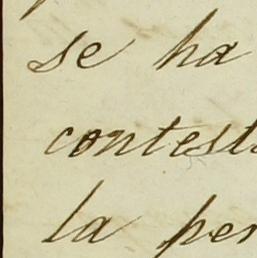 se ha
contest
la per